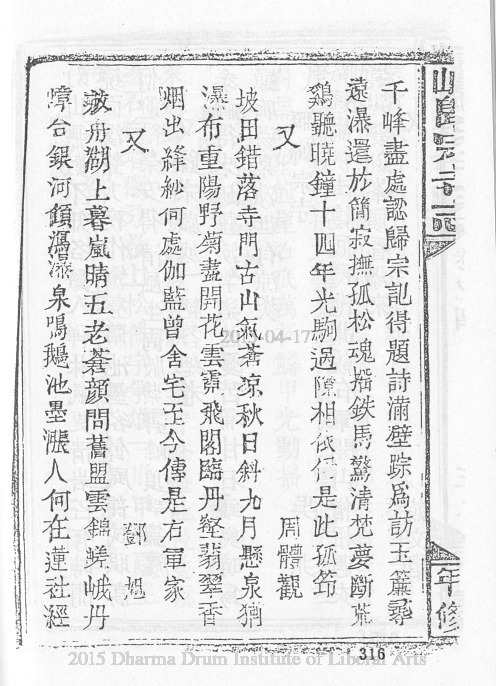 年修
千峰盡處認歸宗記得題詩滿壁踪爲訪玉簾尋
遠瀑還於簡寂撫孤松魂搖鉄馬驚清梵夢斷荒
鷄聽曉鐘十四年光駒過隙相依仍是此孤筇
又 周體觀
坡田錯落寺門古山氣蒼凉秋日斜九月懸泉猶
瀑布重陽野菊盡開花雲飛閣臨丹壑翡翠香
烟出絳紗何處伽監曾舍宅至今傳是右軍家
又 鄧旭
放舟湖上暮嵐晴五老蒼顏問舊盟雲錦嵯峨丹
嶂合銀河傾瀉瀑泉鳴鵝池墨漲人何在蓮社經
316
2015 Dharma Drum Institute of Liberal Arts